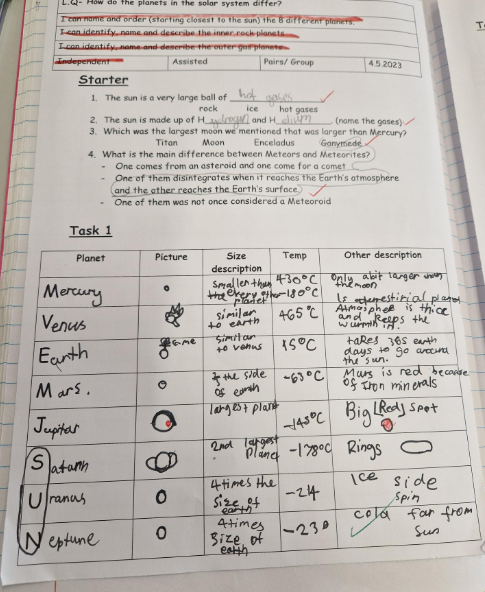 L.Q- How do the planets in the solar system differ?
I can name and order (starting closest to the sun) the 8 different planets.
I can identify, name and describe the inner rock planets.
I can identify, name and describe the outer gas planets.
Independent Assisted Pairs/ Group 4.5.2023
Starter
1. The sun is a very large ball of hot gases
rock ice hot gases
2. The sun is made up of Hydrogen and Helium (name the gases)
3. Which was the largest moon we mentioned that was larger than Mercury?
Titan Moon Enceladus Ganymede
4. What is the main difference between Meteors and Meteorites?
- One comes from an asteroid and one came for a comet
- One of them disintegrates when it reaches the Earth's atmosphere
and the other reaches the Earth's surface
- One of them was not once considered a Meteoroid
Task 1
Planet Picture Size description Temp Other description
Mercury smaller than every other planet 430°C -180°C Only a bit larger than the moon
Venus similar to earth 465°C Atmosphere is thick and keeps the warmth in.
Earth similar to venus 15°C takes 365 earth days to go around the sun.
Mars. the side of earth -63°C Mars is red because of Iron minerals
Jupitar largest plant -145°C Big [Red] spot
Saturn 2nd largest Planet -178°C Rings
Uranus 4 times the size of earth Ice side spin
Neptune 4 times size of earth cold far from sun